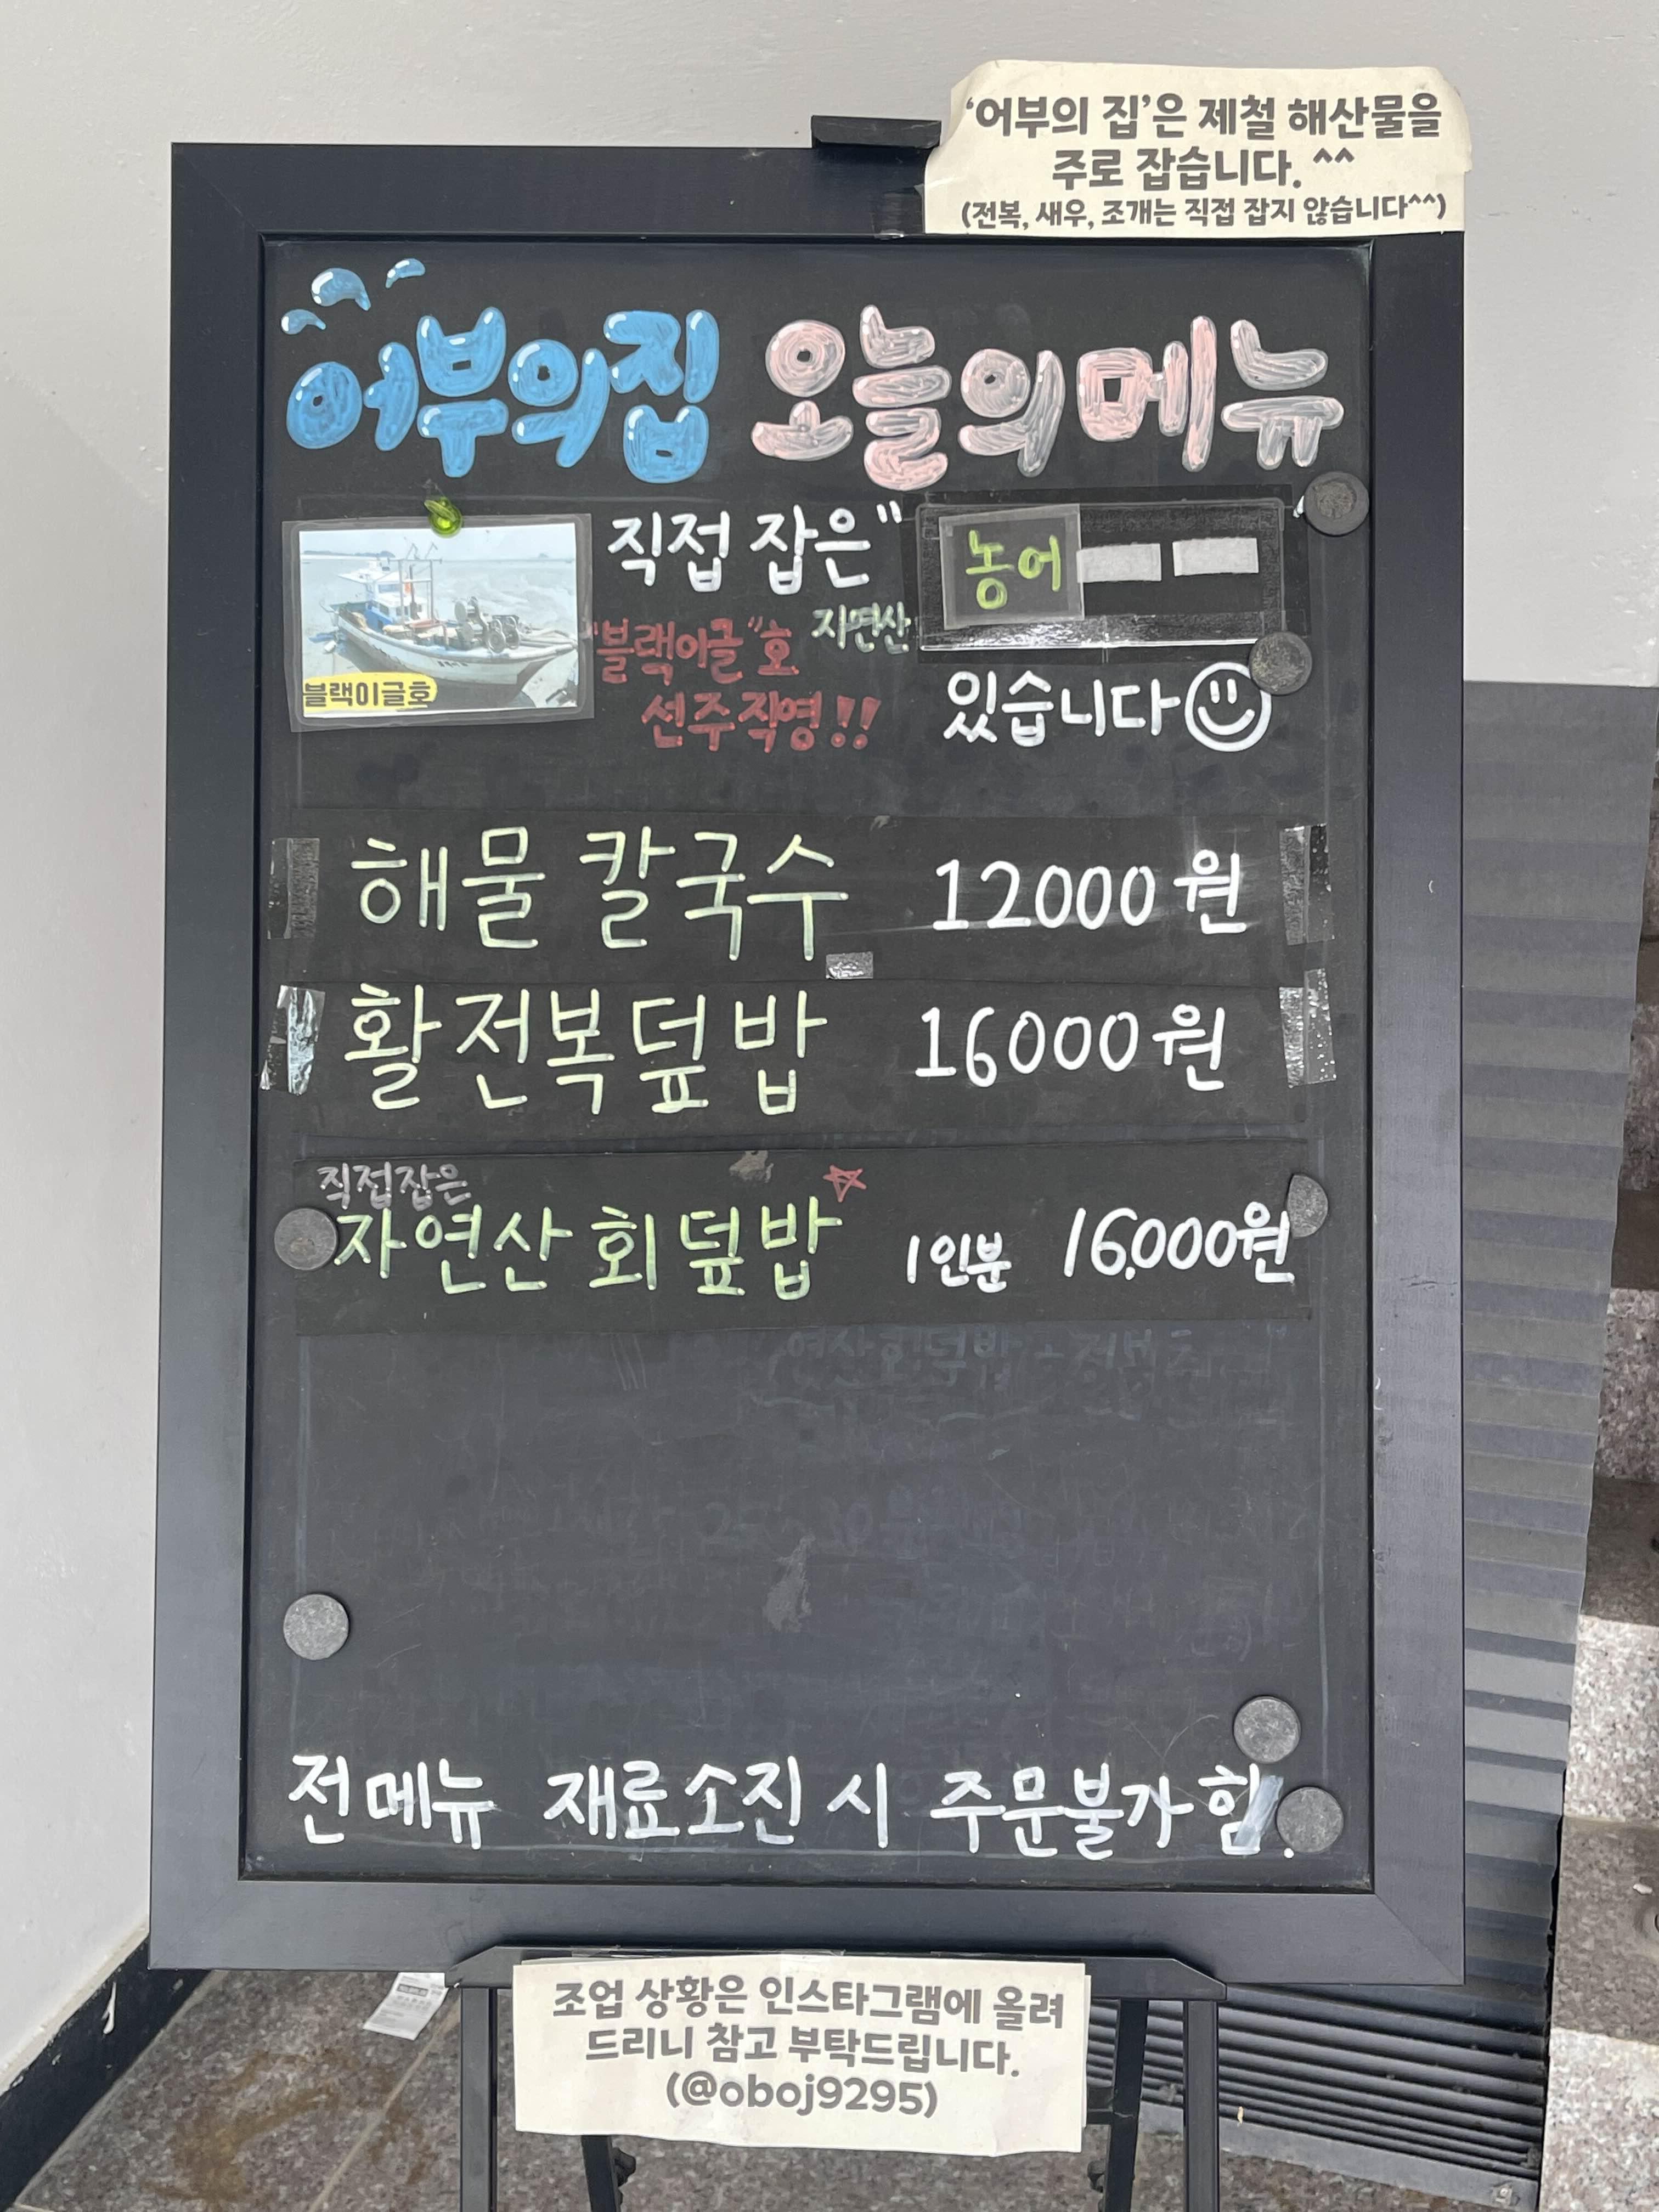 '어부의 집'은 제철 해산물을
주로 잡습니다. ^^
(전복, 새우, 조개는 직접 잡지 않습니다^^)
어부의집 오늘의메뉴
직접 잡은"
자연산
농어
"블랙이글"호
선주직영!!
있습니다
블랙이글호
해물 칼국수 12000원
활전복덮밥 16000원
직접잡은
자연산 회덮밥 1인분 16,000원
전메뉴 재료소진 시 주문불가함.
조업 상황은 인스타그램에 올려
드리니 참고 부탁드립니다.
(@oboj9295)